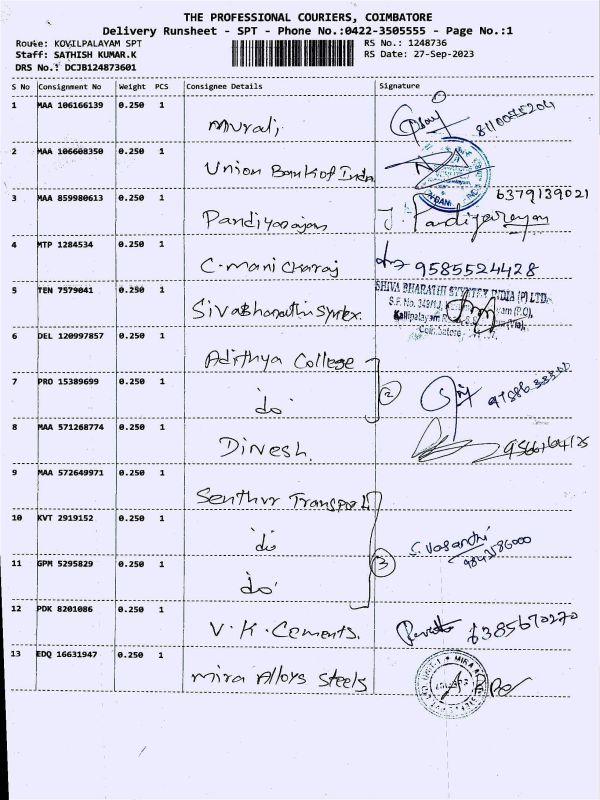 THE PROFESSIONAL COURIERS, COIMBATORE
Delivery Runsheet - SPT - Phone No.:0422-3505555 - Page No.:1
Route: KOVILPALAYAM SPT
RS No.: 1248736
Staff: SATHISH KUMAR.K
RS Date: 27-Sep-2023
DRS No.: DCJB124873601
S No Consignment No Weight PCS Consignee Details Signature
1 MAA 106166139 0.250 1
Murali
2 MAA 106608350 0.250 1
Union Bank of India
3 MAA 859980613 0.250 1 6379139021
Pandiyarajan J. Pandiyarajan
4 MTP 1284534 0.250 1
C. Manickaraj 9585524428
5 TEN 7579041 0.250 1 SHIVA BHARATHI SYNTEX INDIA (P) LTD.
Siva Bharathi Syntex.
6 DEL 120997857 0.250 1
Adithya College
7 PRO 15389699 0.250 1
do 2
8 MAA 571268774 0.250 1
Dinesh.
9 MAA 572649971 0.250 1
Senthur Transport
10 KVT 2919152 0.250 1
do S. Vasanthi
11 GPM 5295829 0.250 1 3
do
12 PDK 8201086 0.250 1
V.K. Cements. 6385670270
13 EDQ 16631947 0.250 1
Mira Alloys Steels